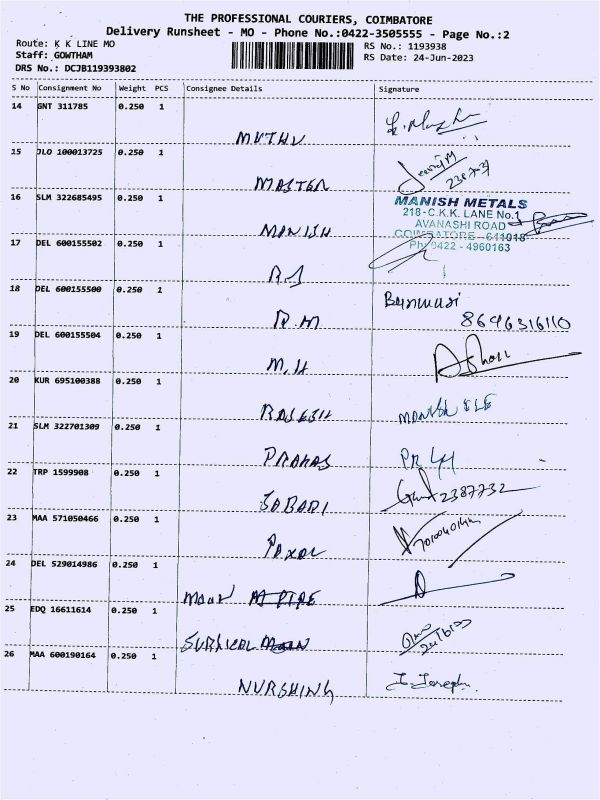 THE PROFESSIONAL COURIERS, COIMBATORE
Delivery Runsheet - MO - Phone No.:0422-3505555 - Page No.:2
Route: K K LINE MO
Staff: GOWTHAM
DRS No.: DCJB119393802
RS No.: 1193938
RS Date: 24-Jun-2023
S No Consignment No Weight PCS Consignee Details Signature
14 GNT 311785 0.250 1
MUTHU
15 JLO 100013725 0.250 1
MASTER
16 SLM 322685495 0.250 1
MANISH
MANISH METALS
218-C.K.K. LANE No.1
AVANASHI ROAD
COIMBATORE - 641018
Ph: 0422 - 4960163
17 DEL 600155502 0.250 1
RJ
18 DEL 600155500 0.250 1
R.M
8696316110
19 DEL 600155504 0.250 1
M.H
20 KUR 695100388 0.250 1
RAJESH
21 SLM 322701309 0.250 1
PRAKAS
22 TRP 1599908 0.250 1
SABARI
2387732
23 MAA 571050466 0.250 1
24 DEL 529014986 0.250 1
25 EDQ 16611614 0.250 1
SURGICAL
26 MAA 600190164 0.250 1
NURSHING
J. Joseph